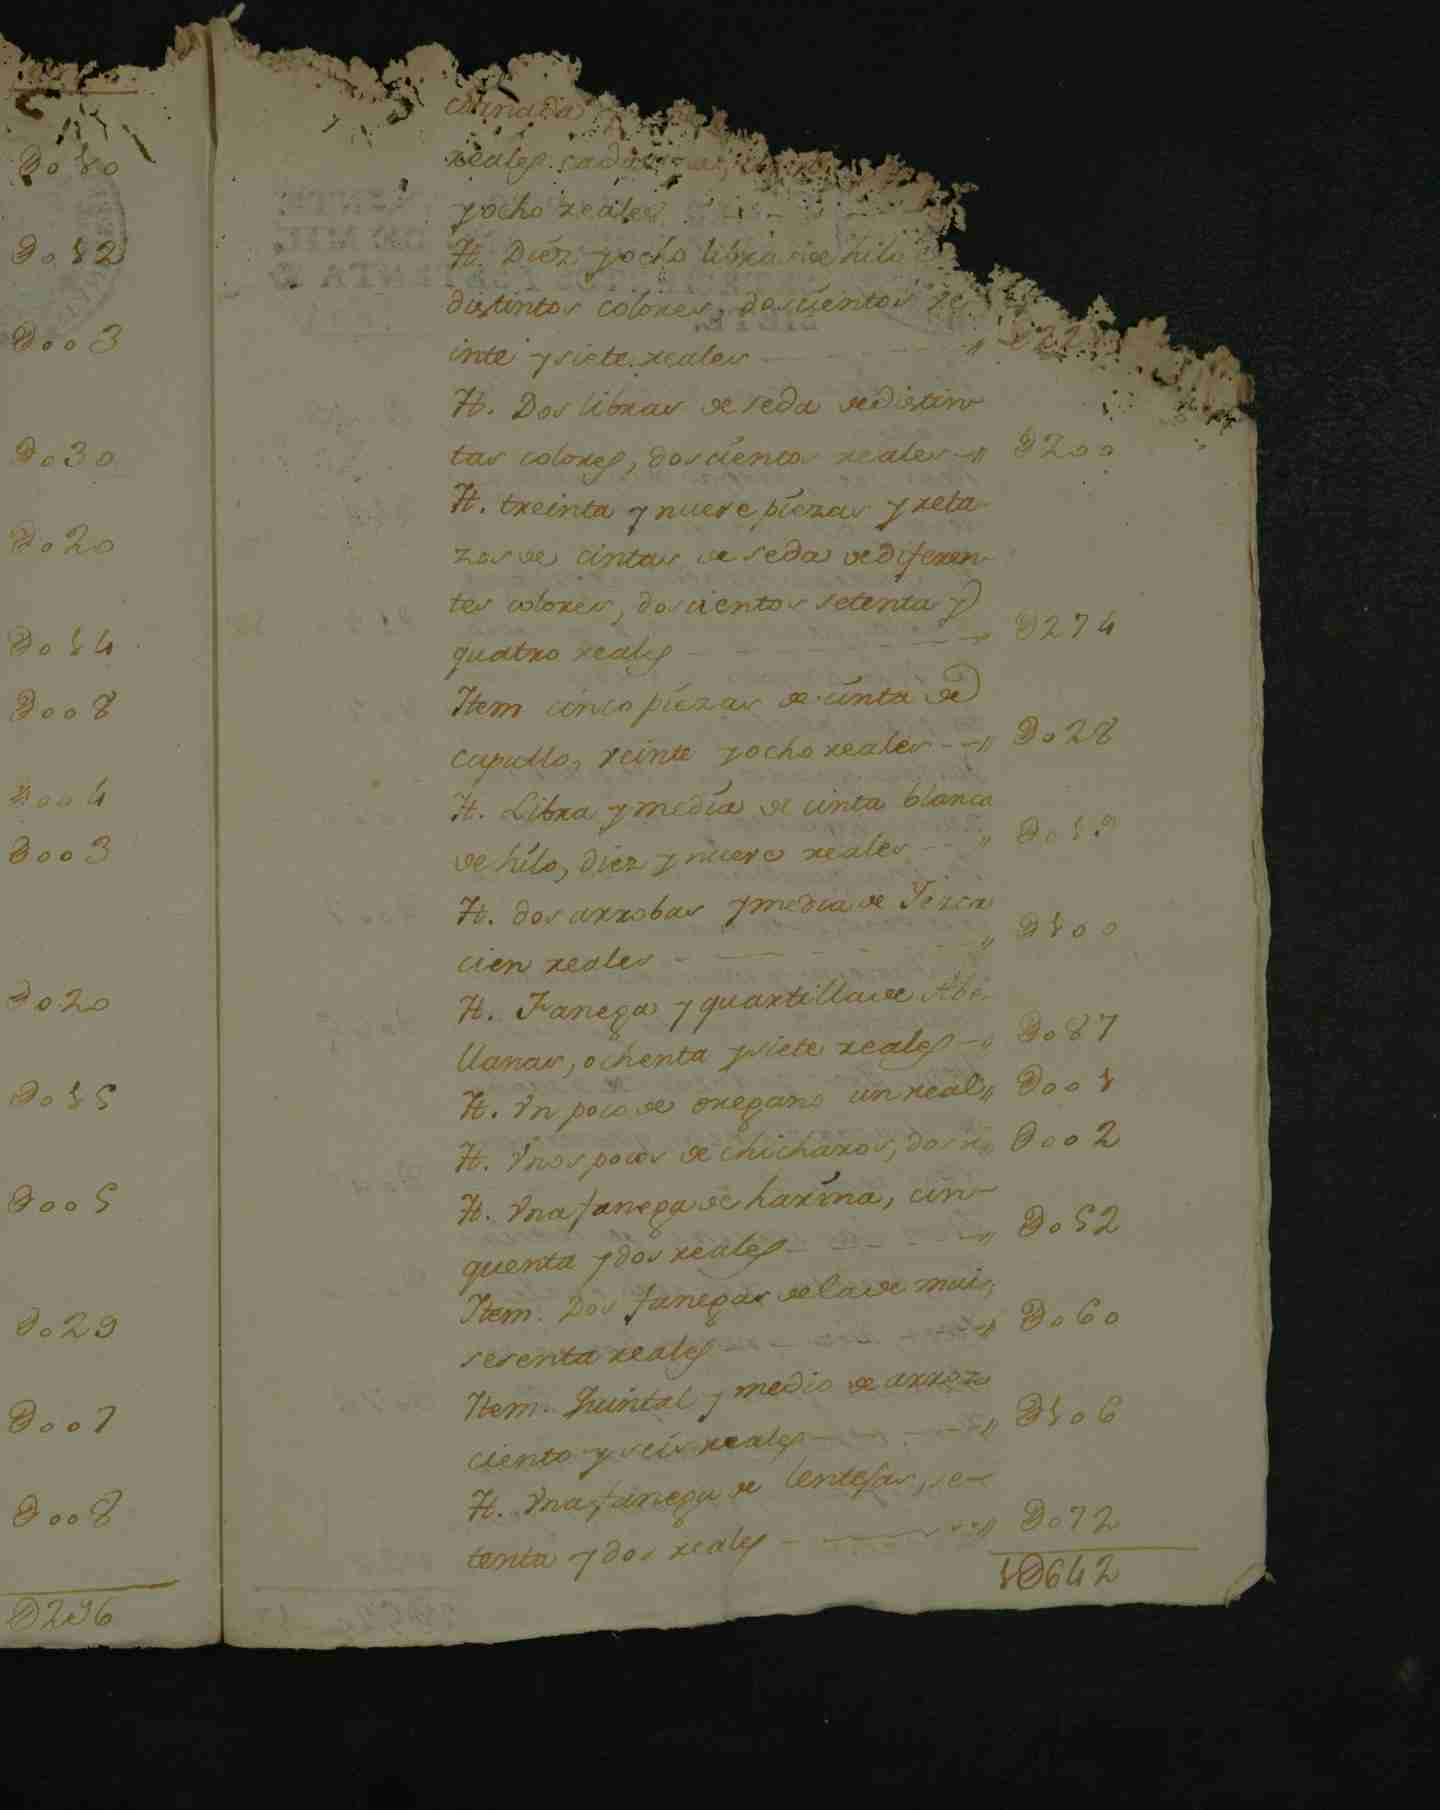 D010
D012
D003
D030
D020
D014
D008
D004
D003
D020
D015
D005
D029
D007
D008
D296
reales cada
y ocho reales
It. Diez y ocho libras de hilo
distintos colores, doscientos ve
inte y siete reales
It. Dos libras de seda de distin
tas colores, doscientos reales D200
It. treinta y nueve piezas y reta
zos de cintas de seda de diferen
tes colores, doscientos setenta y
quatro reales D274
Item cinco piezas de cinta de
capullo, veinte y ocho reales D028
It. Libra y media de cinta blanca
de hilo, diez y nueve reales D019
It. dos arrobas y media de
cien reales D100
It. Fanega y quartilla de Abe
llanas, ochenta y siete reales D087
It. Vn poco de oregano un real D001
It. Vnos pocos de chicharos, dos D002
It. Vna fanega de harina, cin
quenta y dos reales D052
Item. Dos fanegas de la de mais,
sesenta reales D060
Item. Quintal y medio de arroz
ciento y seis reales D106
It. Vna fanega de lentejas, se
tenta y dos reales D072
1D642